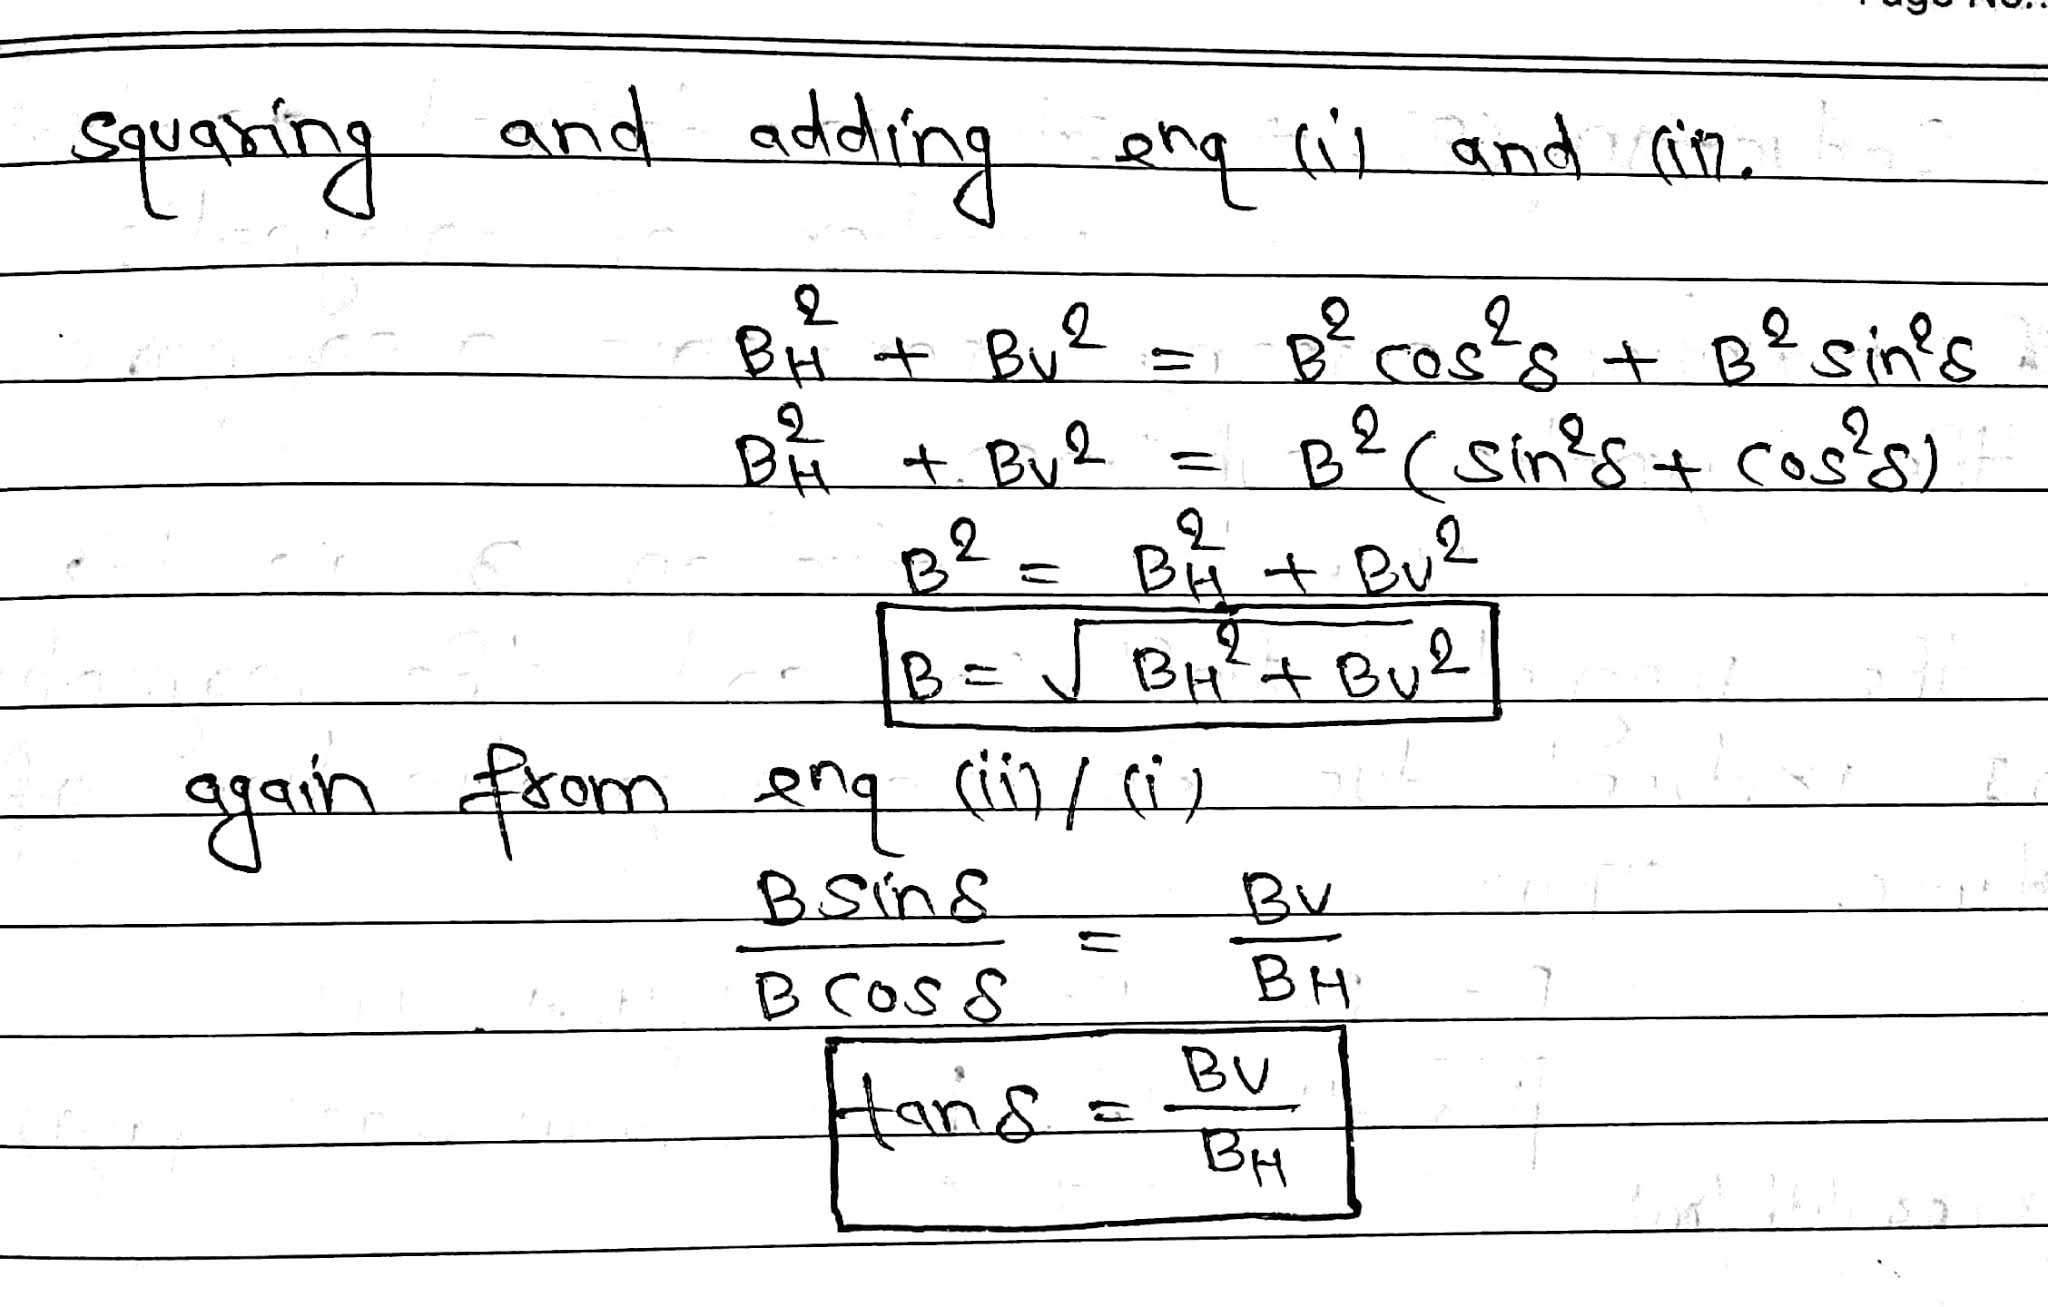 squaring and adding enq (i) and (ii).
B_H² + Bv² = B² cos²δ + B² sin²δ
B_H² + Bv² = B² (sin²δ + cos²δ)
B² = B_H² + Bv²
B = √(B_H² + Bv²)
again from enq (ii) / (i)
B sin δ / B cos δ = Bv / B_H
tan δ = Bv / B_H